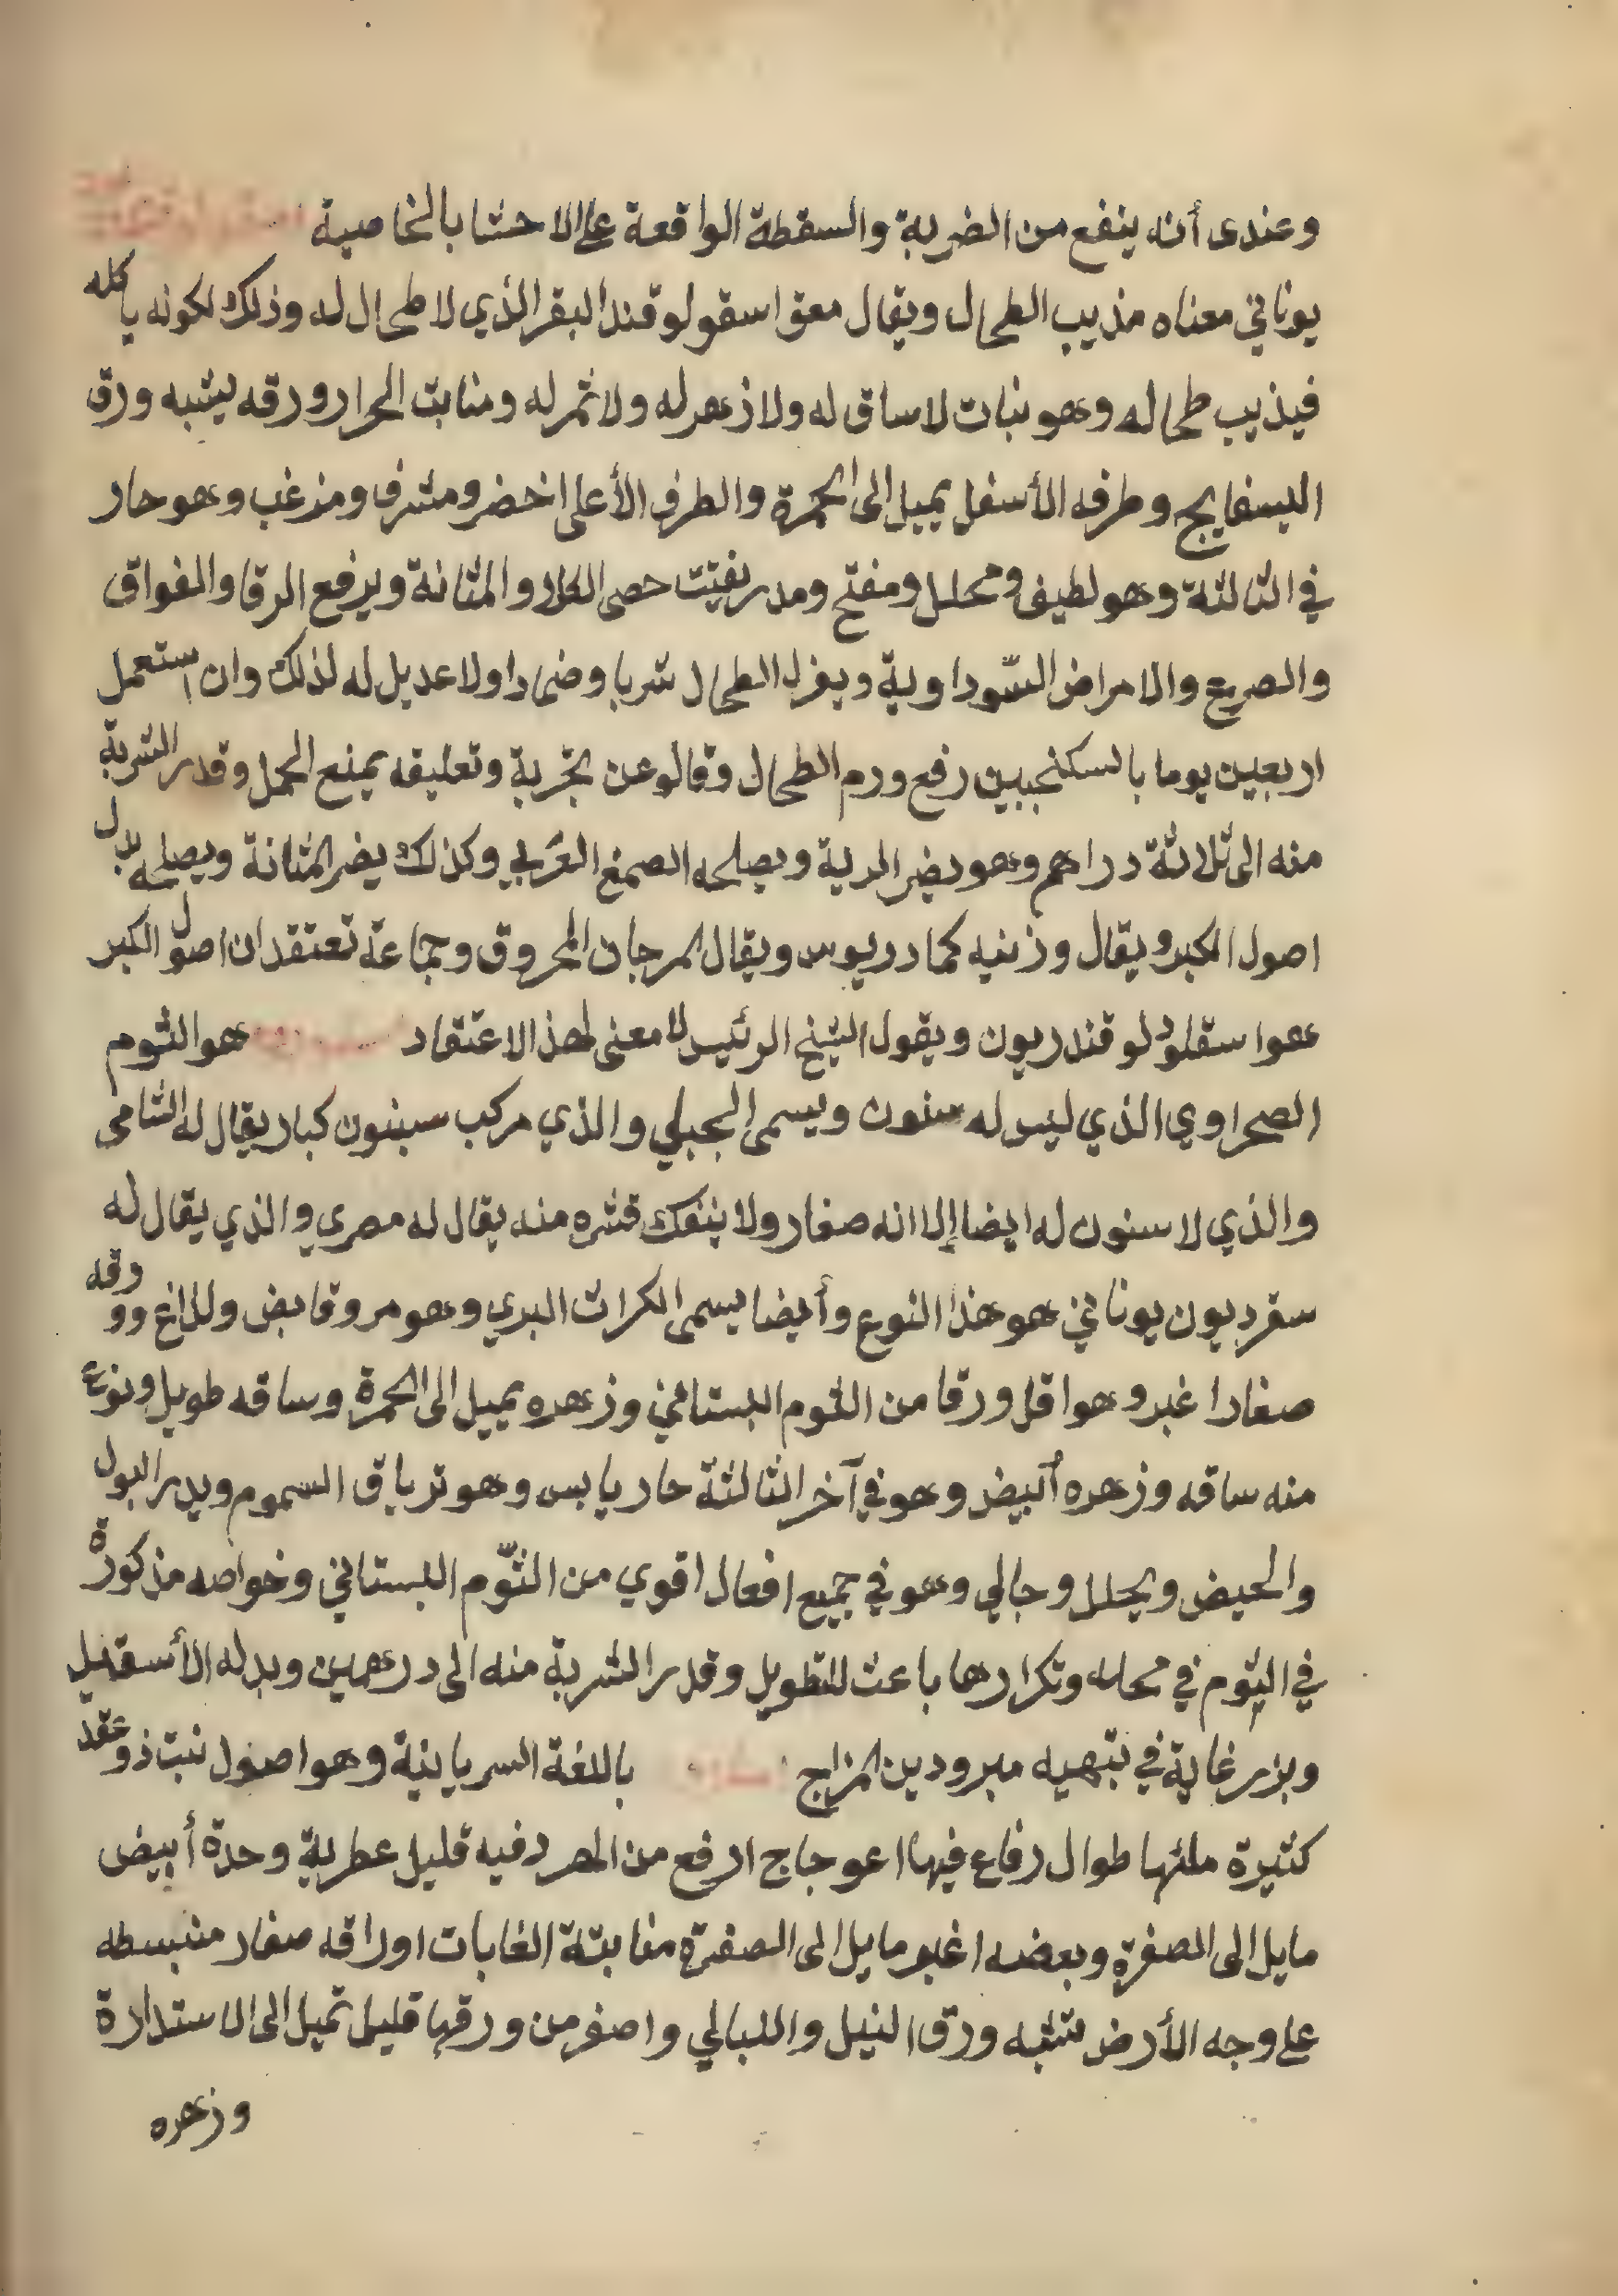 وعندى أنه ينفع من الضربة والسقطة الواقعة على الاحشا بالخاصية
يوناني معناه مذيب الطحال ويقال معق اسقولوقندا البقر الذي لا طحال له وذلك لكونه ياكله
فيذيب طحاله وهو نبات لا ساق له ولا زهر له ولا ثمر له ومنابت الحرار ورقه يشبه ورق
البسفايج وطرفه الأسفل يميل الى الحمرة والطرف الأعلى اخضر ومشرف ومزغب وهو حار
في الثالثة وهو لطيف ومحلل ومفتح ومدر يفتت حصى الكلا والمثانة ويرفع الرقا والفواق
والصرع والامراض السّوداوية ويغزل الطحال شربا وضمادا ولا عديل له لذلك وان استعمل
اربعين يوما بالسكنجبين رفع ورم الطحال وقالو عن تجربة وتعليقه يمنع الحمل وقدر الشربة
منه الى ثلاثة دراهم وهو يضر الرية ويصلحه الصمغ العربي وكذلك يضر المثانة ويصلحه بدل
اصول الكبر ويقال وزنيه كمادريوس ويقال المرجان المحروق وجماعة تعتقد ان اصول الكبر
هوا سقلو لوقندريون ويقول الشيخ الرئيس لا معنى لهذ الاعتقاد هو الثوم
الصحراوي الذي ليس له سنون ويسمى الجبلي والذي مركب سبنون كبار يقال له الشامى
والذي لا سنون له ايضا إلا انه صغار ولا ينفك قشره منه يقال له مصري والذي يقال له
سقرديون يوناني هو هذا النوع وأيضا يسمى الكرات البري وهو مر وقابض ولذاغ وورقه
صغارا غبر وهو اقل ورقا من الثوم البستاني وزهره يميل الى الحمرة وساقه طويل ونوع
منه ساقه وزهره أبيض وهو في آخر الثالثة حار يابس وهو ترياق السموم ويدر البول
والحيض ويحلل وجالي وهو في جميع افعال اقوي من الثّوم البستاني وخواصه مذكورة
في الثوم في محله وتكرارها باعث للتطويل وقدر الشربة منه الى درهمين وبدله الأسقيل
وبزر غاية في تبهيه مبرودين المزاج باللغة السريانية وهو اصول نبت ذو عقد
كثيرة ملئها طوال رفاع فيها اعوجاج ارفع من الهرد فيه قليل عطرية وحدة أبيض
مايل الى الصفرة وبعضه اغبر مايل الى الصفرة منابتة الغابات اوراقه صغار منبسطه
على وجه الأرض تشبه ورق النيل واللبالي واصغر من ورقها قليل تميل الى الاستدارة
وزهره